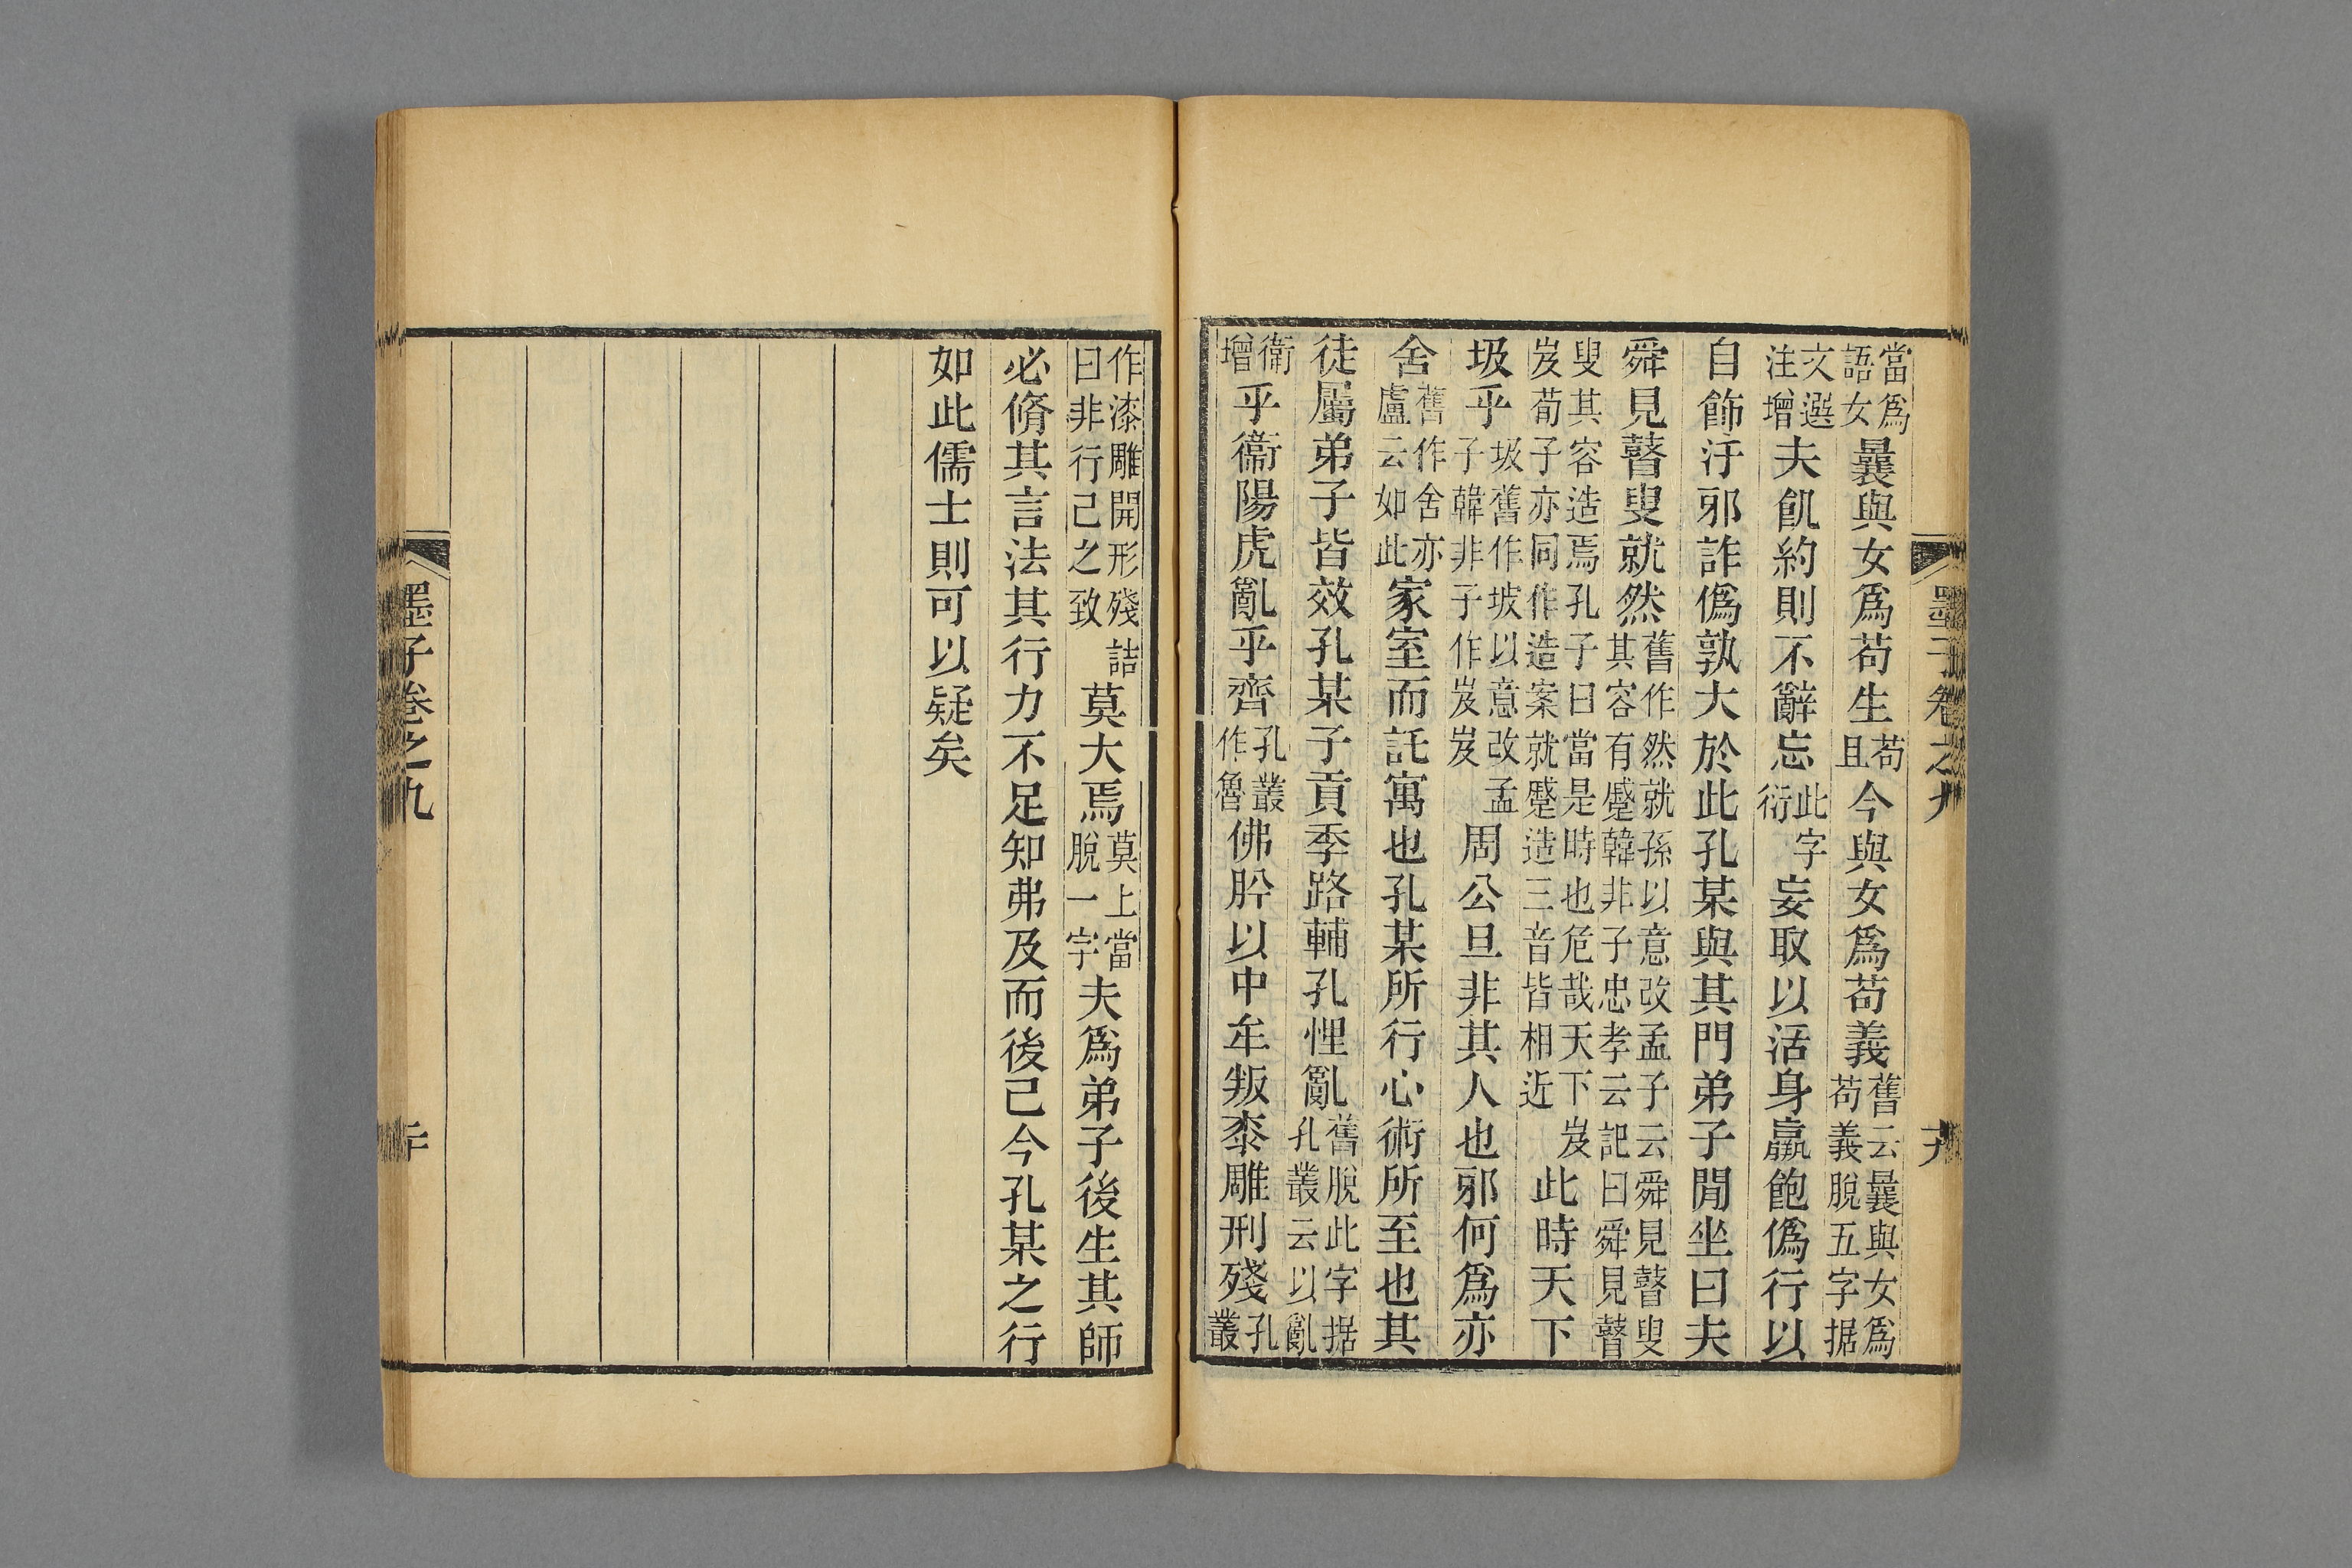 當爲語女曩與女爲苟生苟且今與女爲苟義舊云曩與女爲苟義脫五字據
文選注增夫飢約則不辭忘此字衍妄取以活身贏飽僞行以
自飾汙邪詐僞孰大於此孔某與其門弟子閒坐曰夫
舜見瞽叟就然舊作然就孫以意改孟子云舜見瞽叟其容有蹙韓非子忠孝云記曰舜見瞽
叟其容造焉孔子曰當是時也危哉天下岌岌荀子亦同作造案就蹙造三音皆相近此時天下
圾乎圾舊作坡以意改孟子韓非子作岌岌周公旦非其人也邪何爲亦
舍舊作舍亦盧云如此家室而託寓也孔某所行心術所至也其
徒屬弟子皆效孔某子貢季路輔孔悝亂舊脫此字据孔叢云以亂
衞增乎衞陽虎亂乎齊孔叢作魯佛肸以中牟叛桼雕刑殘孔叢
墨子卷之九
九
作漆雕開形殘詰曰非行己之致莫大焉莫上當脫一字夫爲弟子後生其師
必脩其言法其行力不足知弗及而後己今孔某之行
如此儒士則可以疑矣
墨子卷之九
二十